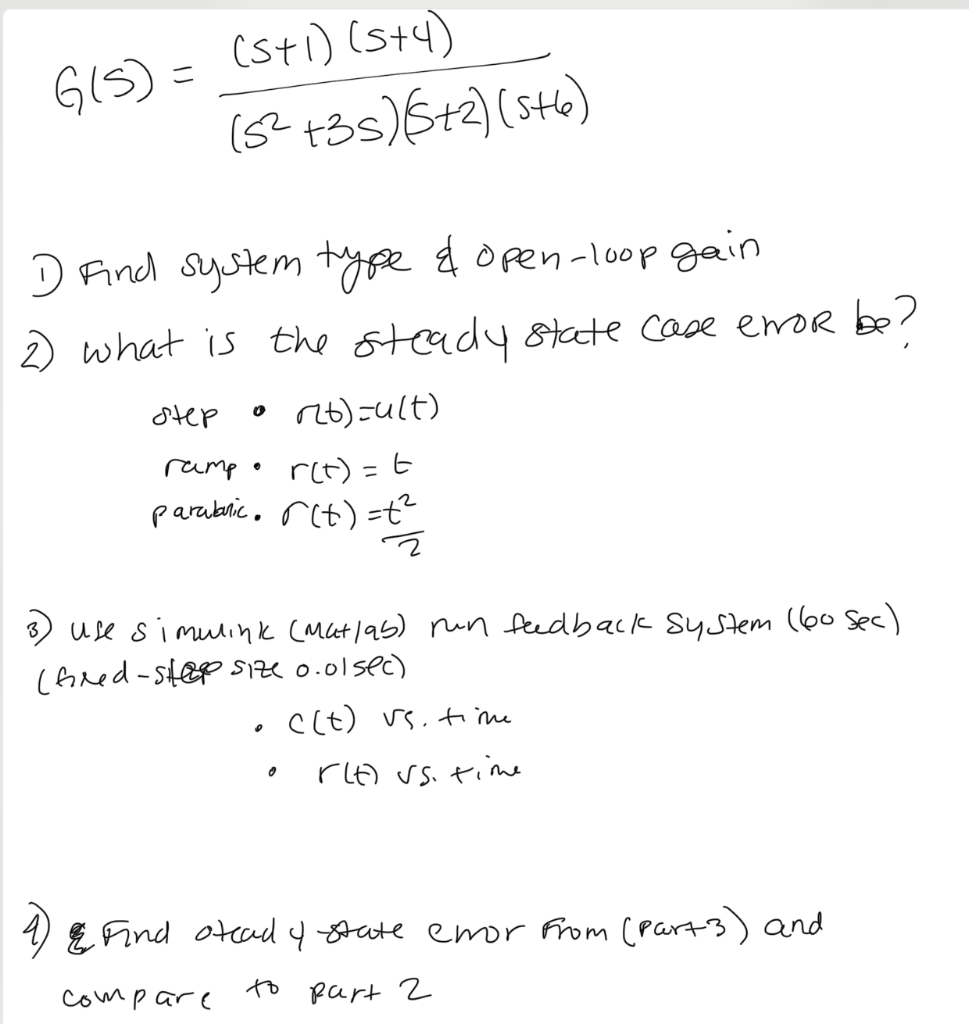 G(S) = (S+1) (S+4)
(S² +3S)(S+2)(S+6)
1) Find system type & open-loop gain
2) what is the steady state case error be?
step • r(t)=u(t)
ramp • r(t) = t
parabolic • r(t) = t²
2
3) use simulink (Matlab) run feedback system (60 sec)
(fixed-step size 0.01sec)
• c(t) vs. time
• r(t) vs. time
4) Find steady state error from (part 3) and
compare to part 2